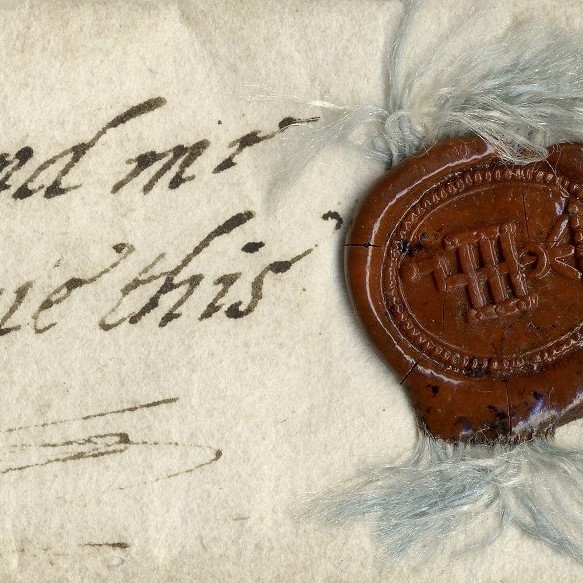 nd mr
ue this